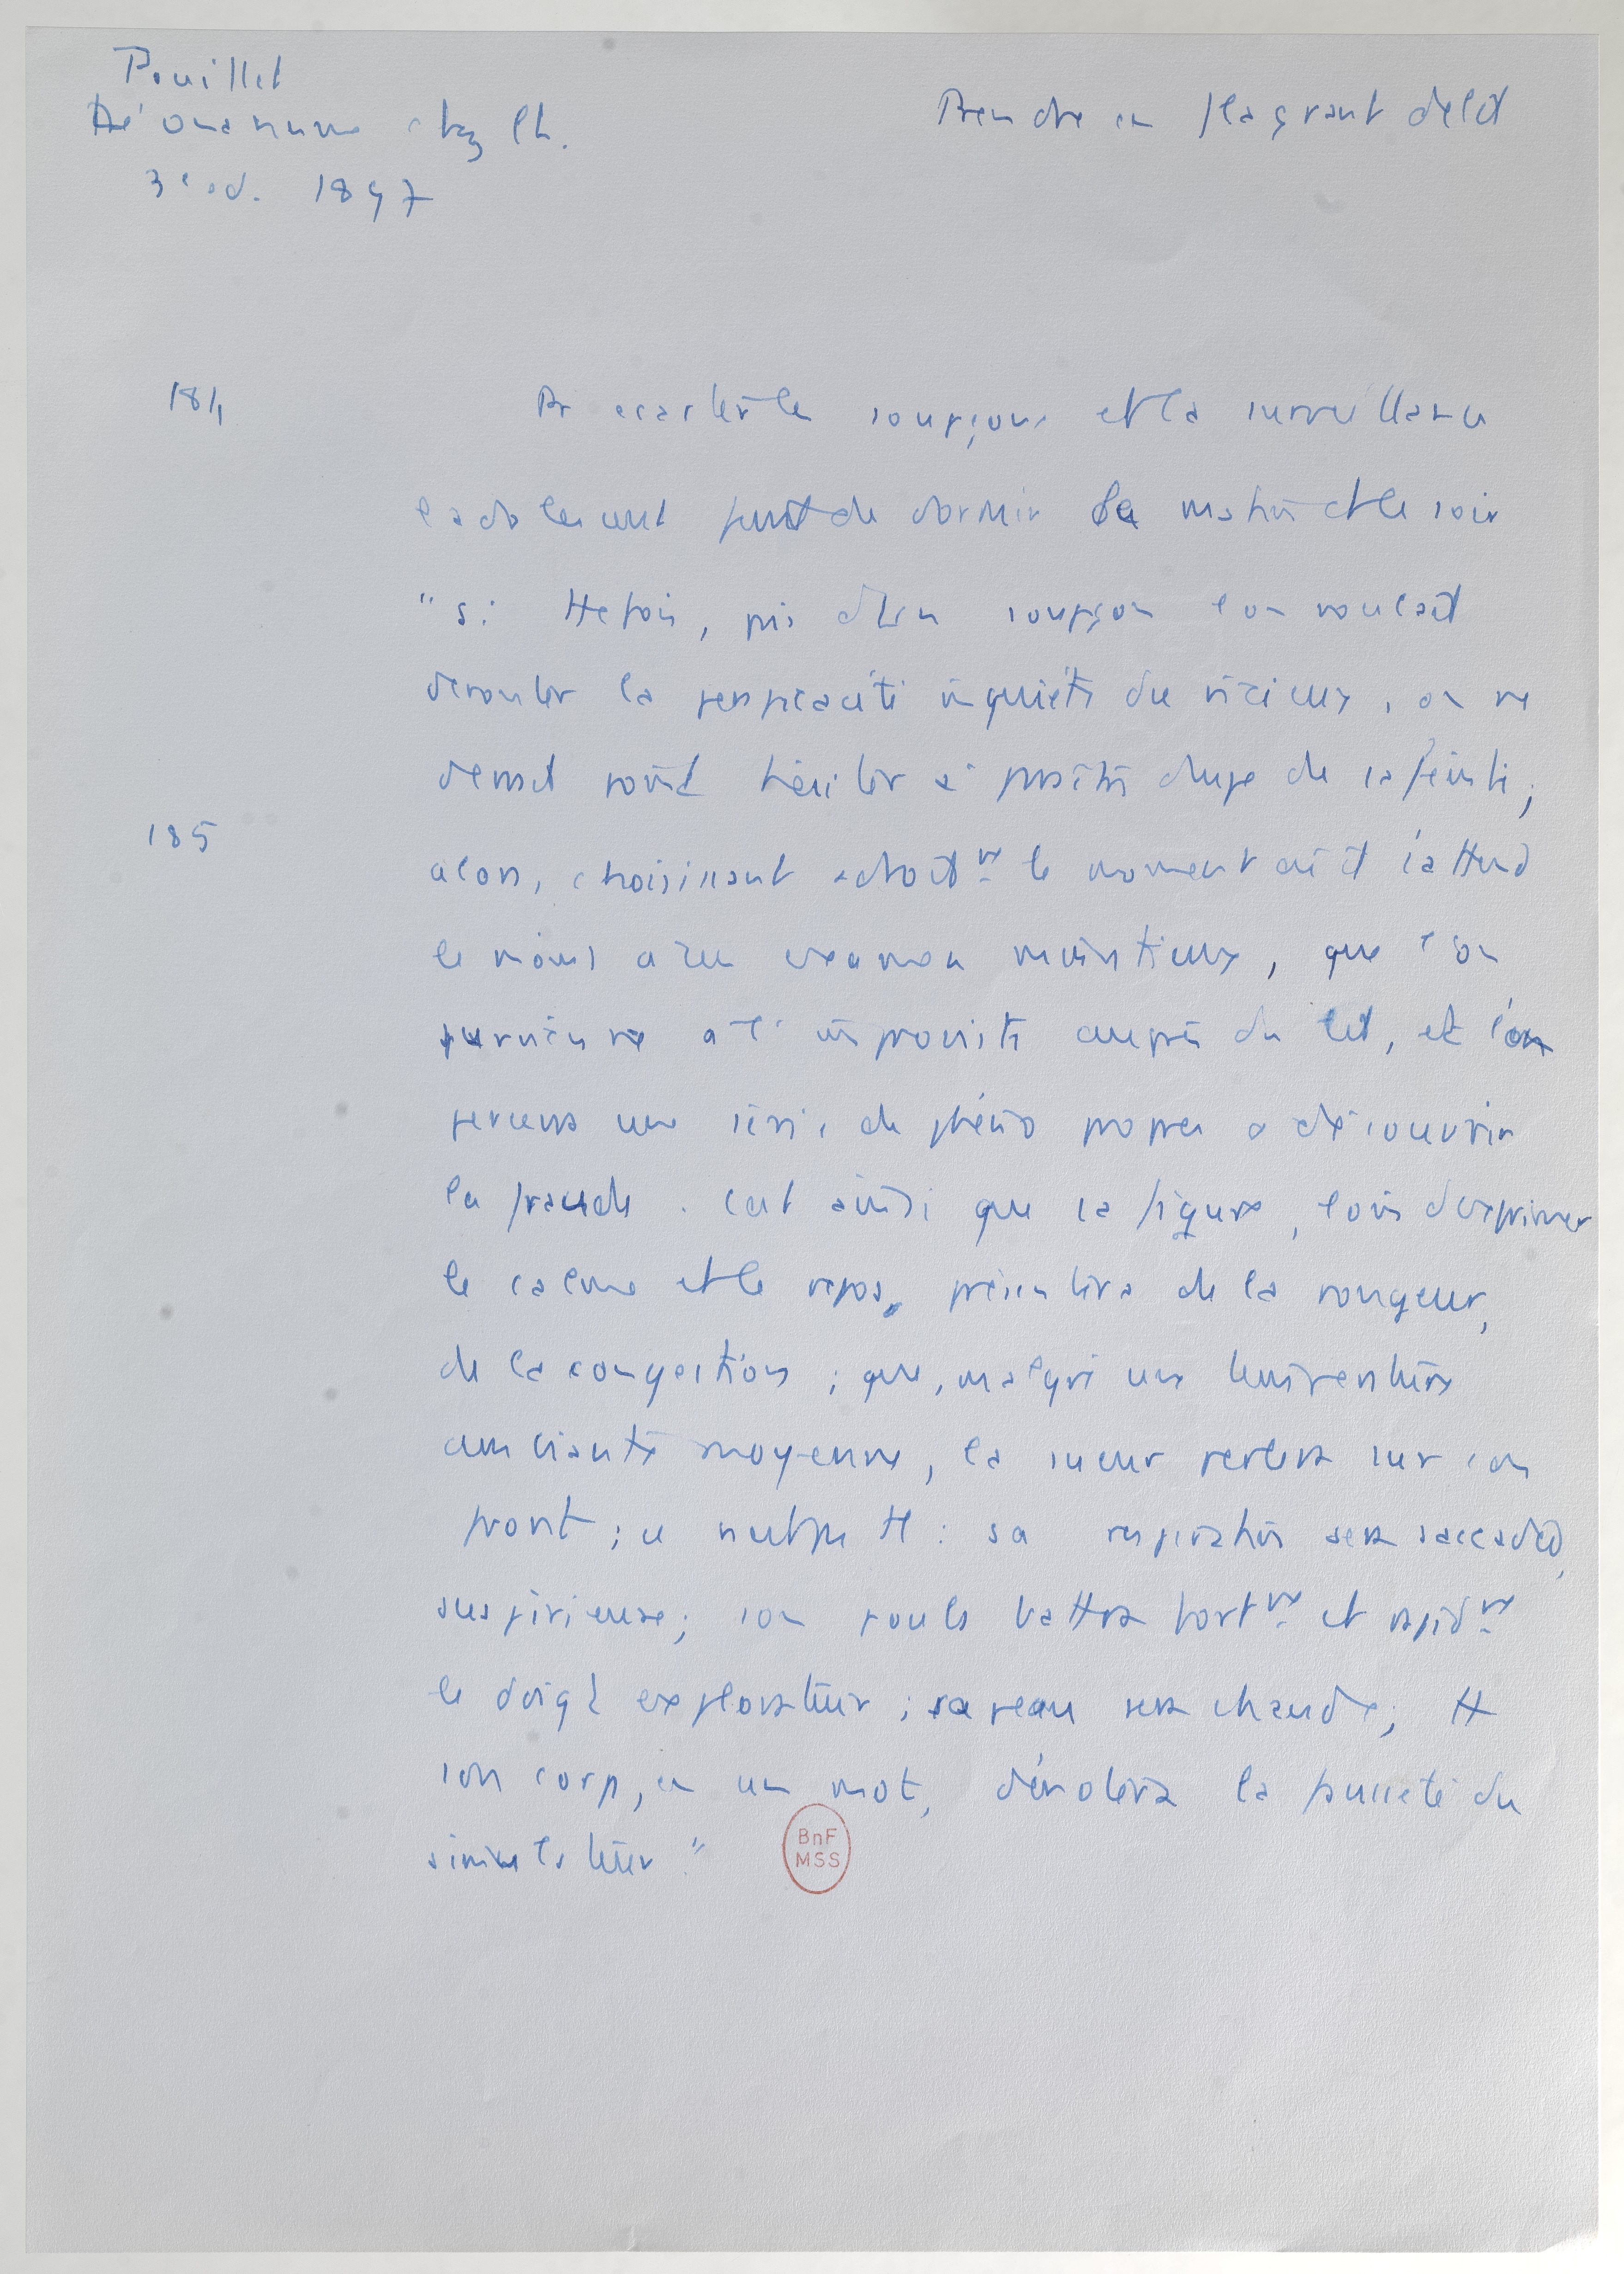 Pouillet
De l'onanisme chez l'h.
3e éd. 1897
Prendre en flagrant délit
184
Pr écarter les soupçons et la surveillance
l'adolescent feint de dormir le matin et le soir
"Si ttefois, pris d'un soupçon l'on voulait
dérouter la perspicacité inquiète du vicieux, on ne
devrait point hésiter à paraître dupe de sa feinte ;
185
alors, choisissant adroitmt le moment où il s'attend
le moins à un examen minutieux, que l'on
survienne à l'improviste auprès du lit, et l'on
percevra une série de phéno propres à découvrir
la fraude. C'est ainsi que sa figure, loin d'exprimer
le calme et le repos, présentera de la rougeur,
de la congestion ; que, malgré une température
ambiante moyenne, la sueur perlera sur son
front ; ce n'est pas tt : sa respiration sera saccadée,
suspirieuse ; son pouls battra fortmt et rapidmt
le doigt explorateur ; sa peau sera chaude ; tt
son corps, en un mot, dévoilera la fausseté du
simulateur"
BnF
MSS